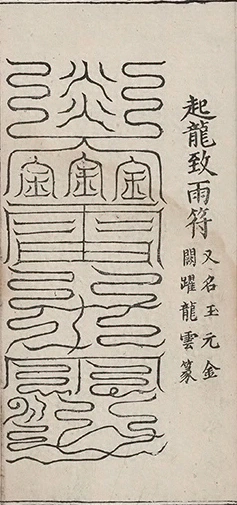 起龍致雨符
又名玉元金
闕躍龍雲篆